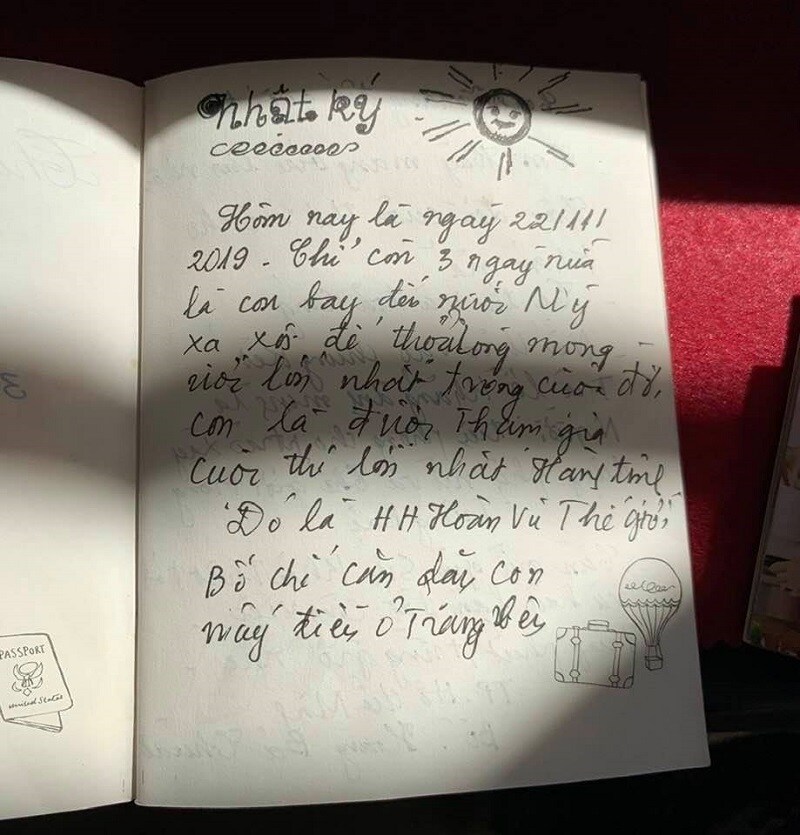 nhật ký
Hôm nay là ngày 22/11/
2019. Chỉ còn 3 ngày nữa
là con bay đến nước Mỹ
xa xôi để thỏa lòng mong
ước lớn nhất trong cuộc đời,
con là được Tham gia
cuộc thi lớn nhất Hành tinh
Đó là HH Hoàn Vũ Thế giới
Bố chỉ cần dặn con
mấy điều ở Trang bên
PASSPORT
United States